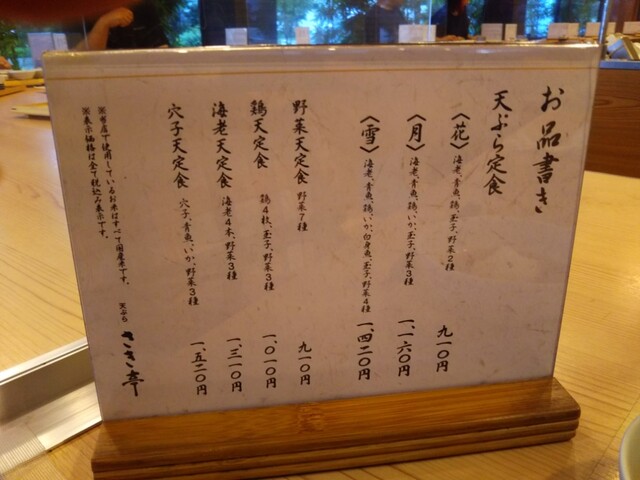 お品書き
天ぷら定食
〈花〉 海老、青魚、鶏、玉子、野菜2種 九一〇円
〈月〉 海老、青魚、鶏、いか、野菜3種 一、一六〇円
〈雪〉 海老、青魚、鶏、いか、白身魚、玉子、野菜4種 一、四二〇円
野菜天定食 野菜7種 九一〇円
鶏天定食 鶏4枚、玉子、野菜3種 一、〇一〇円
海老天定食 海老4本、野菜3種 一、三一〇円
穴子天定食 穴子、青魚、いか、野菜3種 一、五二〇円
※当店で使用しているお米はすべて国産米です。
※表示価格は全て税込み表示です。
天ぷら さき亭